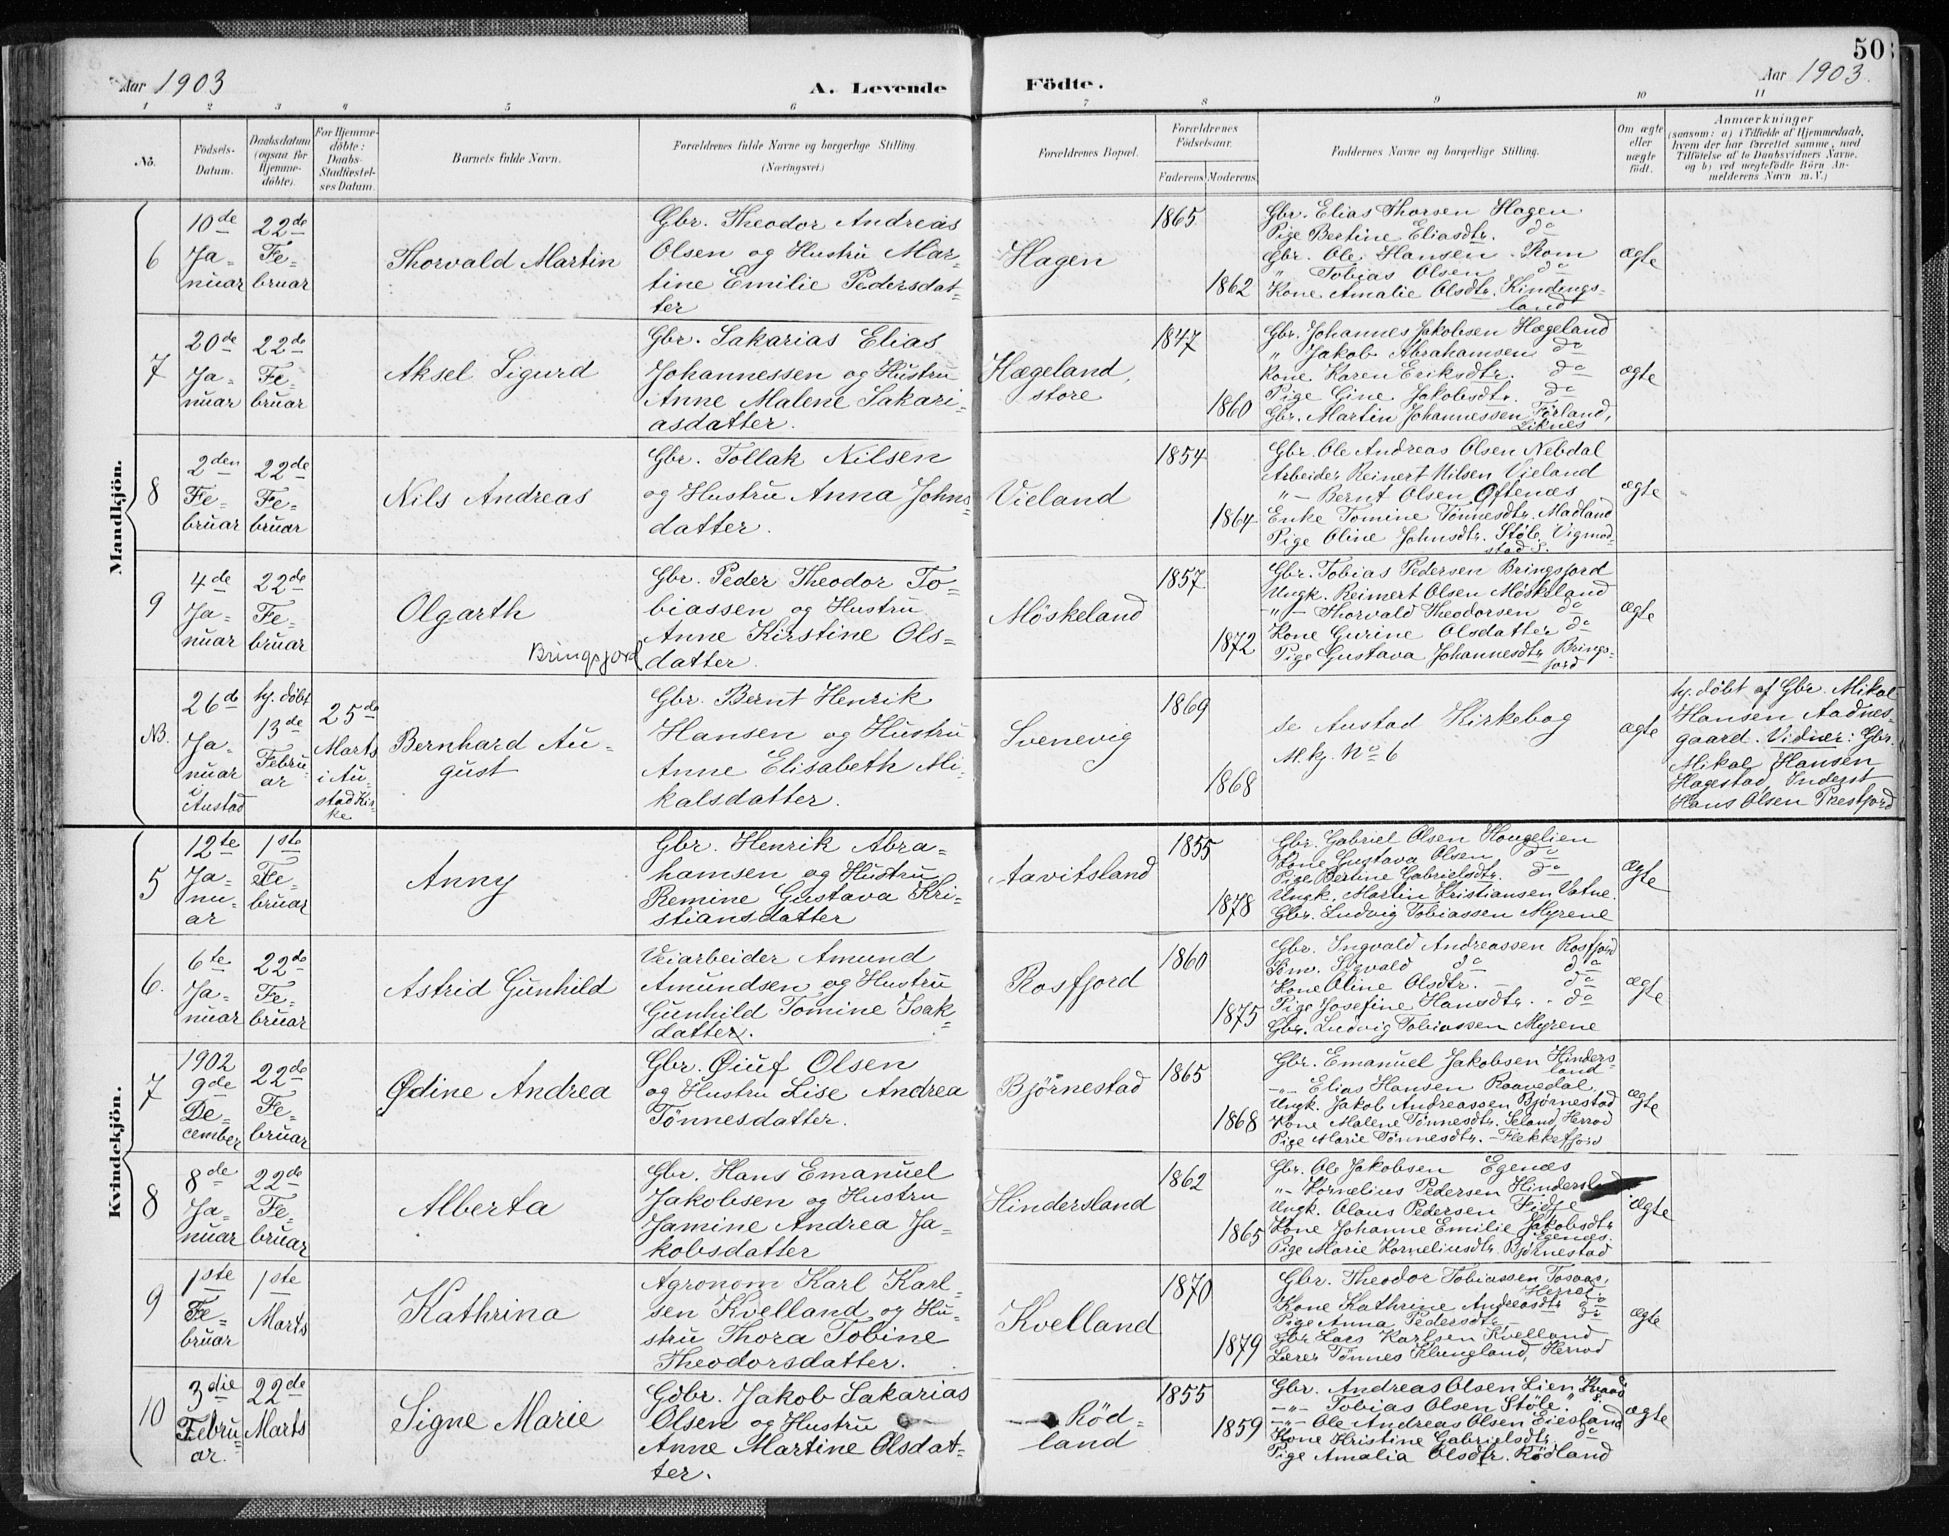 50
Aar 1903
A. Levende
Födte.
Aar 1903.
1 2 3 4 5 6 7 8 9 10 11
No.
Födsels-
Datum.
Daabsdatum
(ogsaa for
Hjemme-
döbte).
For Hjemme-
döbte:
Daabs-
Stadfæstel-
ses Datum.
Barnets fulde Navn.
Forældrenes fulde Navne og borgerlige Stilling.
(Næringsvei.)
Forældrenes Bopæl.
Forældrenes
Födselsaar.
Faderens.
Moderens.
Faddernes Navne og borgerlige Stilling.
Om ægte
eller
uægte
födt.
Anmærkninger
(saasom: a) i Tilfælde af Hjemmedaab,
hvem der har forrettet samme, med
Tilföielse af to Daabsvidners Navne,
og b) ved uægtefödte Börn An-
melderens Navn m. V.)
Mandkjön.
6
10de
Ja-
nuar
22de
Fe-
bruar
Thorvald Martin
Gbr. Theodor Andreas
Olsen og Hustru Mar-
tine Emilie Pedersdat-
ter
Hagen
1865
1862
Gbr. Elias Thorsen Hagen
Pige Bertine Eliasdtr. do
Gbr. Ole Hansen Rom
" Tobias Olsen do
Kone Amalie Olsdtr. Kindings-
land
ægte
7
20de
Ja-
nuar
22de
Fe-
bruar
Aksel Sigurd
Gbr. Sakarias Elias
Johannessen og Hustru
Anne Malene Sakari-
asdatter.
Hægeland,
store
1847
1860
Gbr. Johannes Jakobsen Hægeland
" Jakob Abrahamsen do
Kone Karen Eriksdtr. do
Pige Gine Jakobsdtr. do
Gbr. Martin Johannessen Förland,
Liknes
ægte
8
2den
Fe-
bruar
22de
Fe-
bruar
Nils Andreas
Gbr. Tollak Nilsen
og Hustru Anna Johns-
datter.
Vieland
1854
1864
Gbr. Ole Andreas Olsen Nebdal
Arbeider Reinert Nilsen Vieland
" - Bernt Olsen Øftenæs
Enke Tomine Tønnesdtr. Madland
Pige Oline Johnsdtr. Støle, Vigmod-
stad S.
ægte
9
4de
Ja-
nuar
22de
Fe-
bruar
Olgarth
Bringsjord
Gbr. Peder Theodor To-
biassen og Hustru
Anne Kirstine Ols-
datter.
Möskeland
1857
1872
Gbr. Tobias Pedersen Bringsjord
Ungk. Reinert Olsen Möskeland
-"- Thorvald Theodorsen do
Kone Gurine Olsdatter do
Pige Gustava Johannesdtr. Brings-
jord
ægte
NB.
26de
Ja-
nuar
i
Austad
hj. döbt
13de
Febru-
ar
25de
Marts
i Au-
stad Kir-
ke
Bernhard Au-
gust
Gbr. Bernt Henrik
Hansen og Hustru
Anne Elisabeth Mi-
kalsdatter.
Svenevig
1869
1868
se Austad Kirkebog
M.kj. No 6
ægte
hj. döbt af Gbr. Mikal
Hansen Aadnes-
gaard. Vidner: Gbr.
Mikal Hansen
Hagestad, Inderst
Hans Olsen Prestjord
Kvindekjön.
5
12te
Ja-
nu-
ar
1ste
Fe-
bruar
Anny
Gbr. Henrik Abra-
hamsen og Hustru
Remine Gustava Kri-
stiansdatter
Aavitsland
1855
1878
Gbr. Gabriel Olsen Hougelien
Kone Gustava Olsen do
Pige Bertine Gabrielsdtr. do
Ungk. Martin Kristiansen Vatne.
Gbr. Ludvig Tobiassen Myrene
ægte
6.
6te
Ja-
nuar
22de
Fe-
bruar
Astrid Gunhild
Veiarbeider Amund
Amundsen og Hustru
Gunhild Tomine Isak-
datter.
Rosfjord
1860
1875
Gbr. Ingvald Andreassen Rosfjord
Sigvald do do
Kone Oline Olsdtr. - do
Pige Josefine Hansdtr. - do
Gbr. Ludvig Tobiassen Myrene
ægte
7
1902
9de
De-
cember
22de
Fe-
bruar
Ødine Andrea
Gbr. Øiuf Olsen
og Hustru Lise Andrea
Tönnesdatter.
Bjørnestad
1865
1868
Gbr. Emanuel Jakobsen Hinders-
land
-"- Elias Hansen Raavedal
Ungk. Jakob Andreassen Bjørnestad
Kone Malene Tønnesdtr. Seland, Herrod
Pige Marie Tønnesdtr. - Flekkefjord
ægte
8
8de
Ja-
nuar
22de
Fe-
bruar
Alberta
Gbr. Hans Emanuel
Jakobsen og Hustru
Jamine Andrea Ja-
kobsdatter
Hindersland
1862
1865
Gbr. Ole Jakobsen Egenæs
"- Kornelius Pedersen Hindersland
Ungk. Olaus Pedersen Fidje
Kone Johanne Emilie Jakobsdtr
Egenæs.
Pige Marie Korneliusdtr. Bjørnestad
ægte
9
1ste
Fe-
bruar
1ste
Marts
Kathrina
Agronom Karl Karl-
sen Kvelland og Hu-
stru Thora Tobine
Theodorsdatter.
Kvelland
1870
1879
Gbr. Theodor Tobiassen Tosaas,
Herrel.
Kone Kathrine Andreasdtr do
Pige Anna Pedersdtr do
Gbr Lars Karlsen Kvelland
Lærer Tønnes Klungland, Herrod
ægte
10
3die
Febru-
ar.
22de
Marts
Signe Marie
Gdbr. Jakob Sakarias
Olsen og Hustru
Anne Martine Olsdat-
ter.
Röd-
land
1855
1859
Gbr. Andreas Olsen Lien,
-"- Tobias Olsen Støle.
-"- Ole Andreas Olsen Eiesland
Kone Kristine Gabrielsdtr. do
Pige Amalia Olsdtr. Rødland
ægte